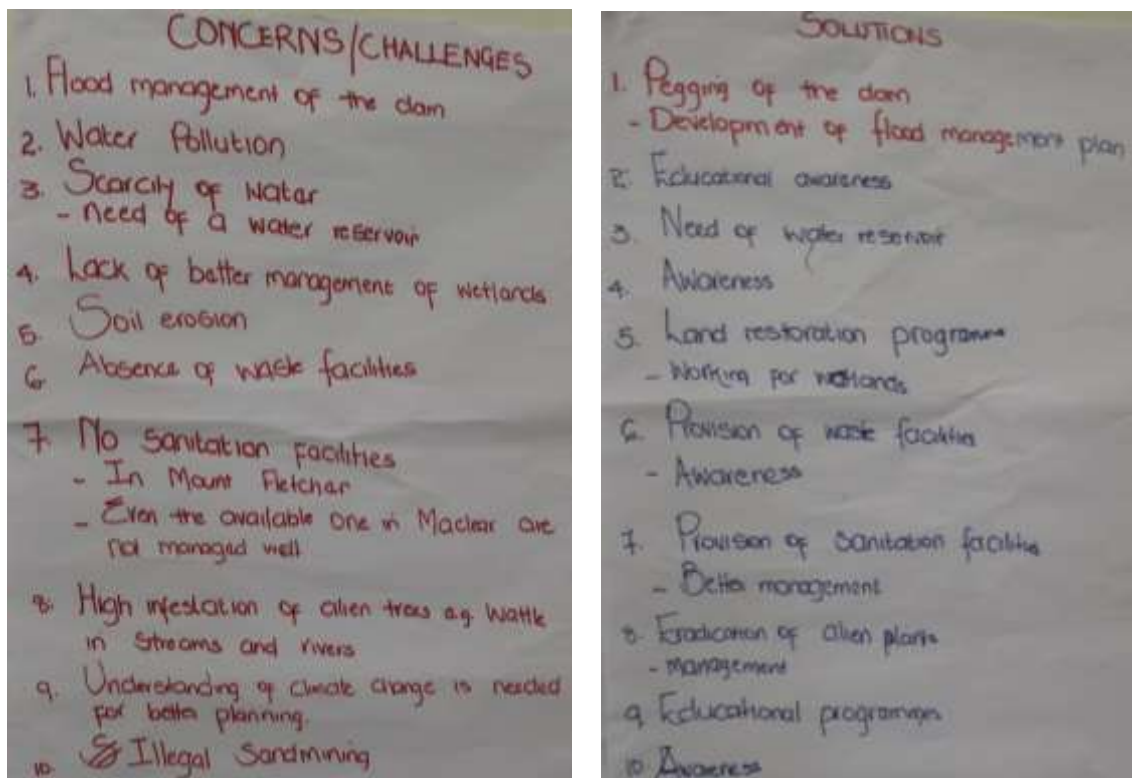 CONCERNS/CHALLENGES
1. Flood management of the dam
2. Water Pollution
3. Scarcity of water
- need of a water reservoir
4. Lack of better management of wetlands
5. Soil erosion
6. Absence of waste facilities
7. No sanitation facilities
- In Mount Fletchar
- Even the available one in Maclear are
not managed well
8. High infestation of alien trees e.g. Wattle
in streams and rivers
9. Understanding of climate change is needed
for better planning.
10. Illegal Sandmining
SOLUTIONS
1. Pegging of the dam
- Development of flood management plan
2. Educational awareness
3. Need of water reservoir
4. Awareness
5. Land restoration programme
- Working for wetlands
6. Provision of waste facilities
- Awareness
7. Provision of sanitation facilities
- Better management
8. Eradication of alien plants
- management
9. Educational programmes
10. Awareness